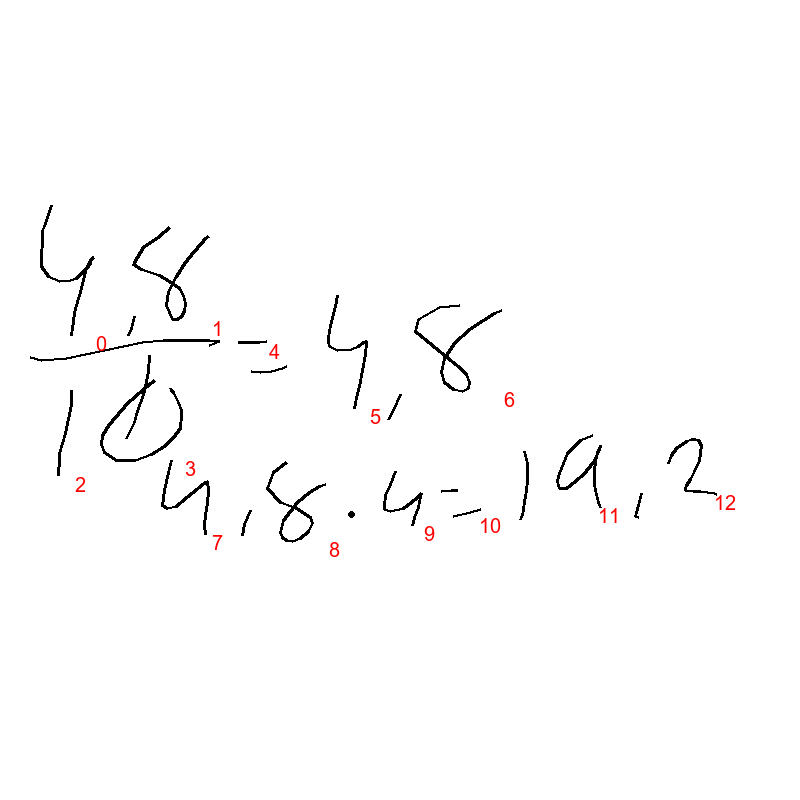 4,8
10 = 4,8
4,8 · 4 = 19,2
0
1
2
3
4
5
6
7
8
9
10
11
12